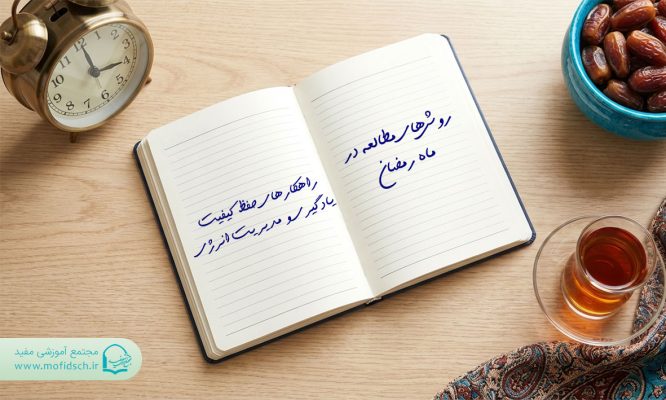 روش‌های مطالعه در
ماه رمضان
راهکارهای حفظ کیفیت
یادگیری و مدیریت انرژی
مجتمع آموزشی مفید
www.mofidsch.ir
12
1
2
3
4
5
6
7
8
9
10
11